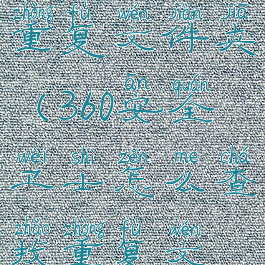 chóng fù wén jiàn jiā
重复文件夹
ān quán
（360安全
wèi shì zěn me chá
卫士怎么查
zhǎo zhòng fù wén
找重复文